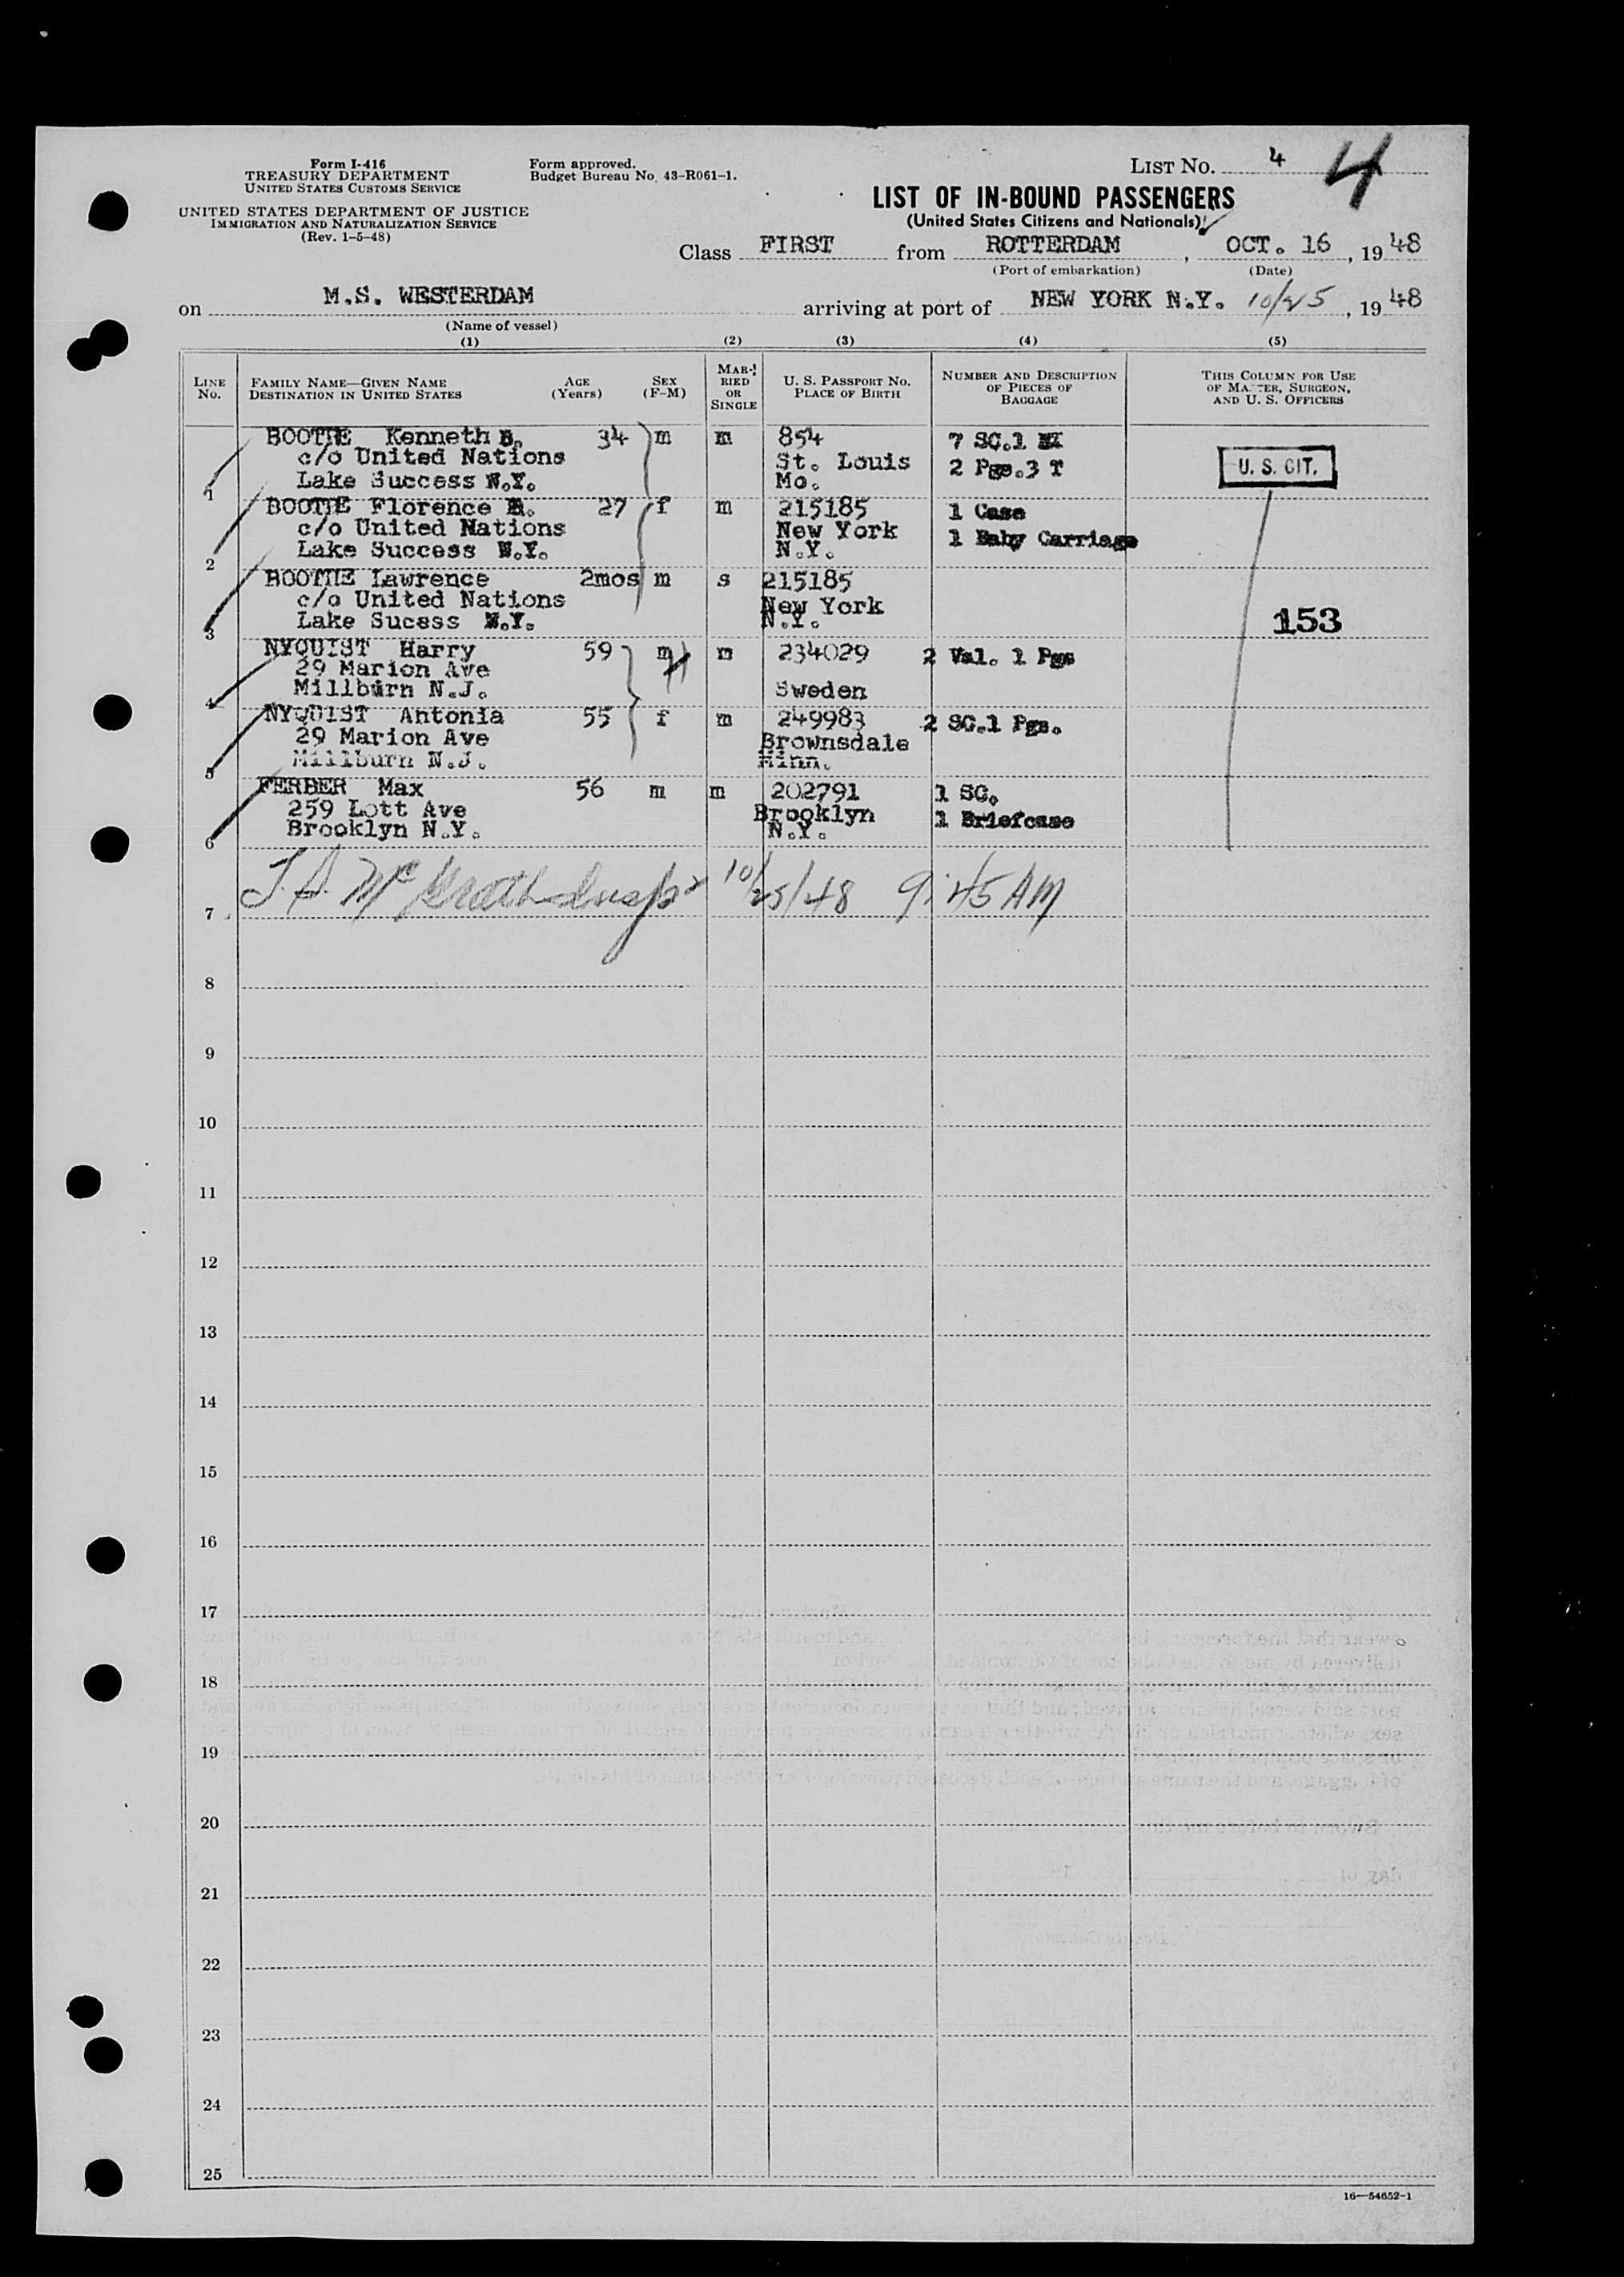 Form I-416
TREASURY DEPARTMENT
UNITED STATES CUSTOMS SERVICE
UNITED STATES DEPARTMENT OF JUSTICE
IMMIGRATION AND NATURALIZATION SERVICE
(Rev. 1-5-48)
Form approved.
Budget Bureau No. 43-R061-1.
LIST NO. 4 4
LIST OF IN-BOUND PASSENGERS
(United States Citizens and Nationals)
Class FIRST from ROTTERDAM, OCT. 16, 1948
(Port of embarkation) (Date)
on M.S. WESTERDAM arriving at port of NEW YORK N.Y. 10/25, 1948
(Name of vessel)
(1) (2) (3) (4) (5)
LINE NO. FAMILY NAME—GIVEN NAME DESTINATION IN UNITED STATES AGE (Years) SEX (F-M) MARRIED OR SINGLE U. S. PASSPORT NO. PLACE OF BIRTH NUMBER AND DESCRIPTION OF PIECES OF BAGGAGE THIS COLUMN FOR USE OF MASTER, SURGEON, AND U. S. OFFICERS
Kenneth 34 m m 854 7 SC.1
c/o United Nations St. Louis 2 Pgs.3 T U. S. CIT.
1 Lake Success N.Y. Mo.
Florence 27 f m 215185 1 Case
c/o United Nations New York 1 Baby Carriage
2 Lake Success N.Y. N.Y.
Lawrence 2mos m s 215185
c/o United Nations New York
3 Lake Sucess N.Y. N.Y. 153
NYQUIST Harry 59 m m 234029 2 Val. 1 Pgs
29 Marion Ave
4 Millburn N.J. Sweden
NYQUIST Antonia 55 f m 249983 2 SC.1 Pgs.
29 Marion Ave Brownsdale
5 Millburn N.J. Minn.
FERBER Max 56 m m 202791 1 SC.
259 Lott Ave Brooklyn 1 Briefcase
6 Brooklyn N.Y. N.Y.
7 10/25/48 9:45 AM
8
9
10
11
12
13
14
15
16
17
18
19
20
21
22
23
24
25
16—54652-1